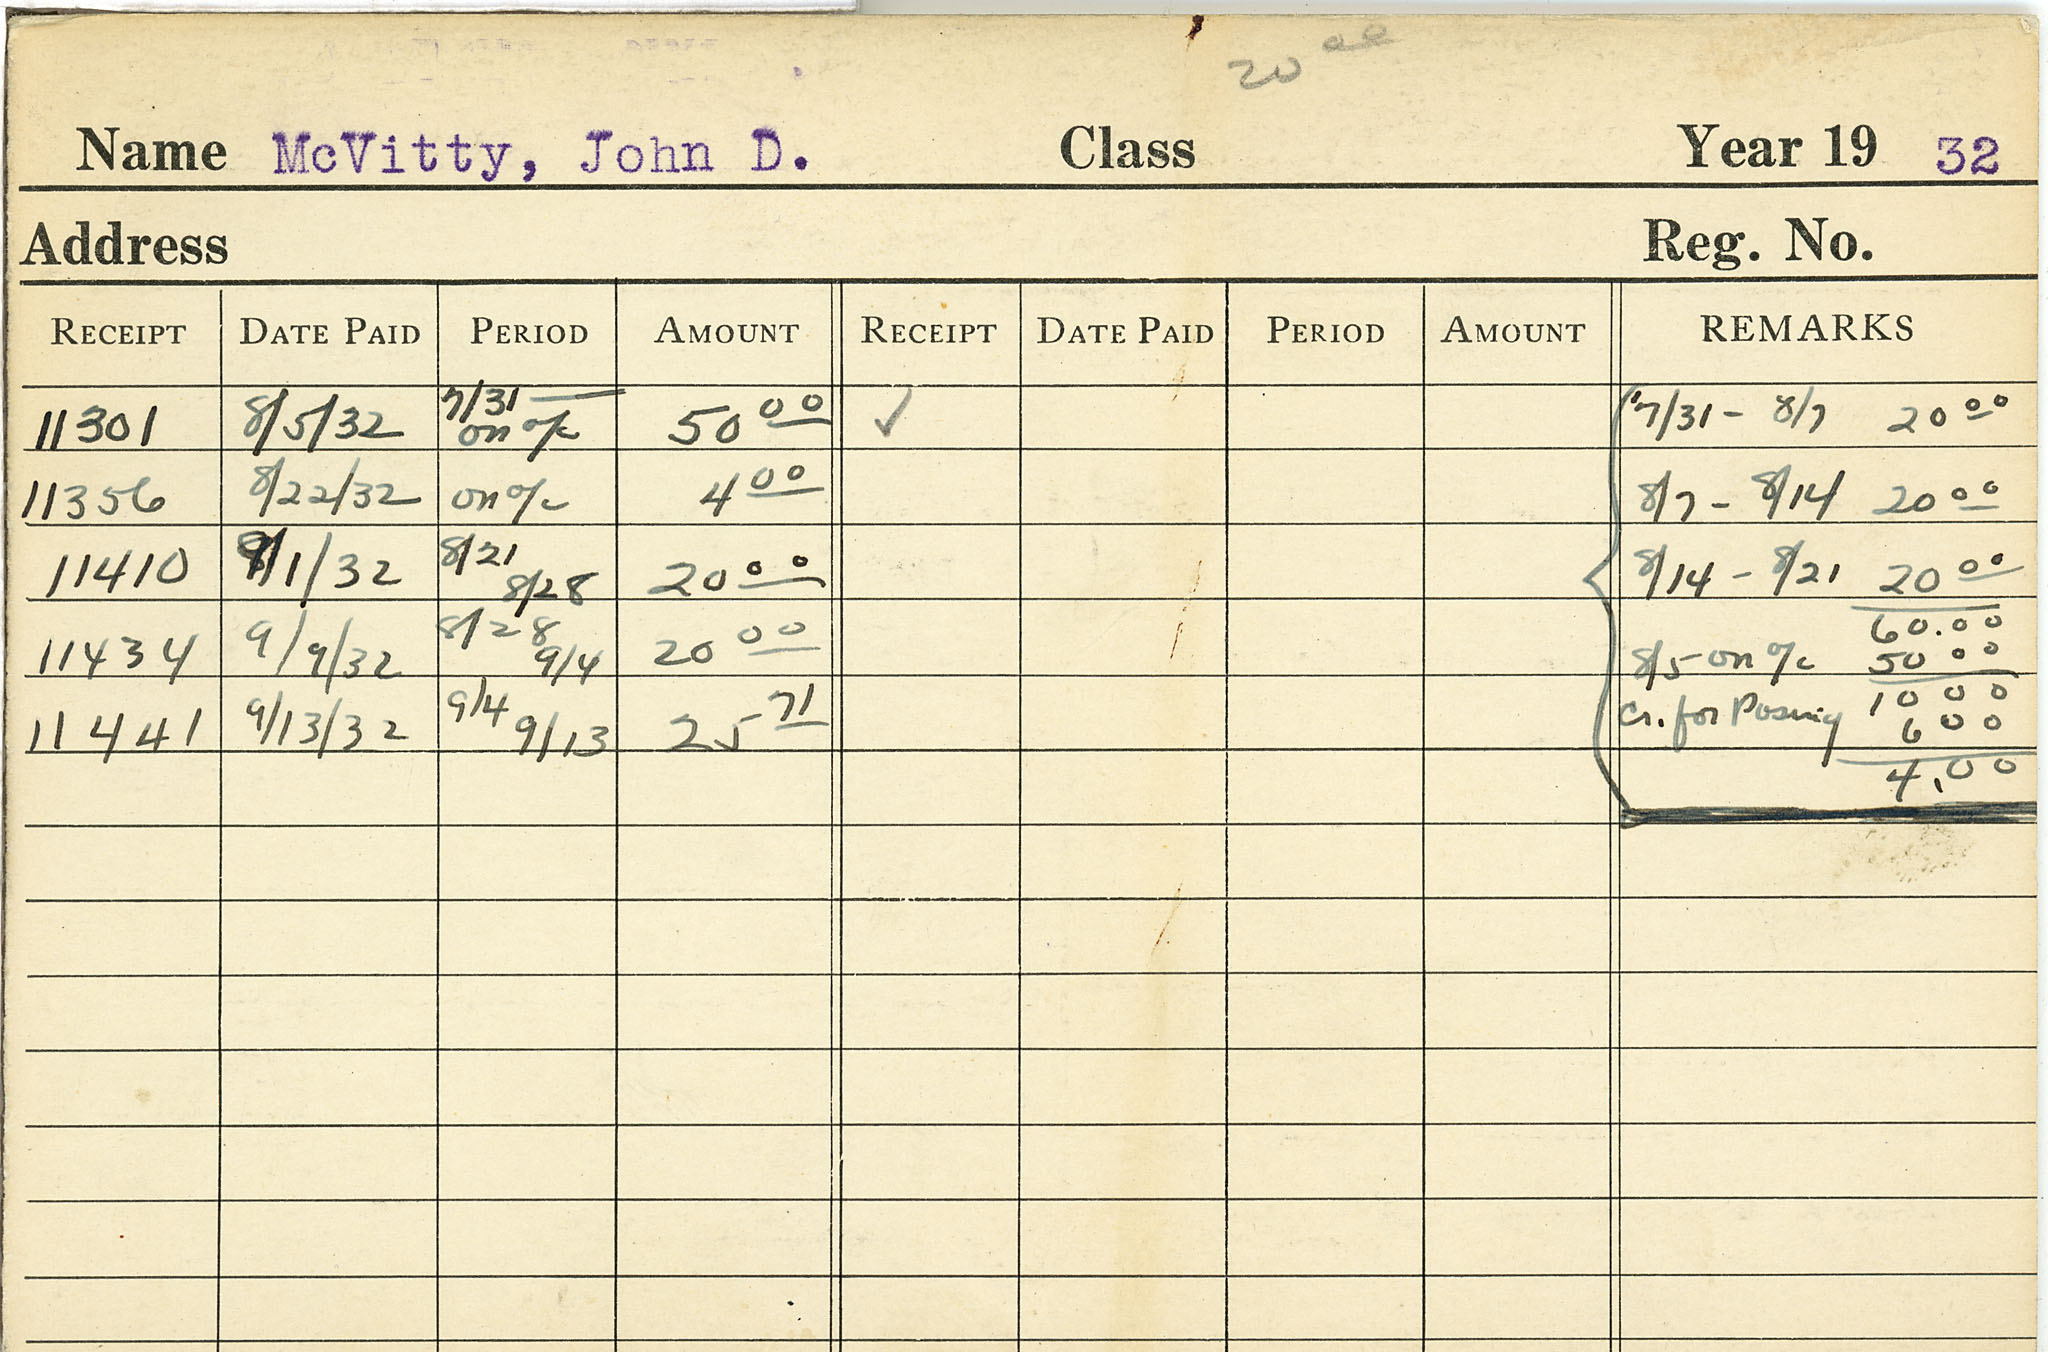 20 00
Name McVitty, John D. Class Year 19 32
Address Reg. No.
RECEIPT DATE PAID PERIOD AMOUNT RECEIPT DATE PAID PERIOD AMOUNT REMARKS
11301 8/5/32 7/31 — on a/c 50 00 ✓ 7/31 - 8/7 20 00
11356 8/22/32 on a/c 4 00 8/7 - 8/14 20 00
11410 9/1/32 8/21 8/28 20 00 8/14 - 8/21 20 00
60.00
11434 9/9/32 8/28 9/4 20 00 8/5 on a/c 50 00
10 00
11441 9/13/32 9/4 9/13 25 71 Cr. for Posing 6 00
4.00